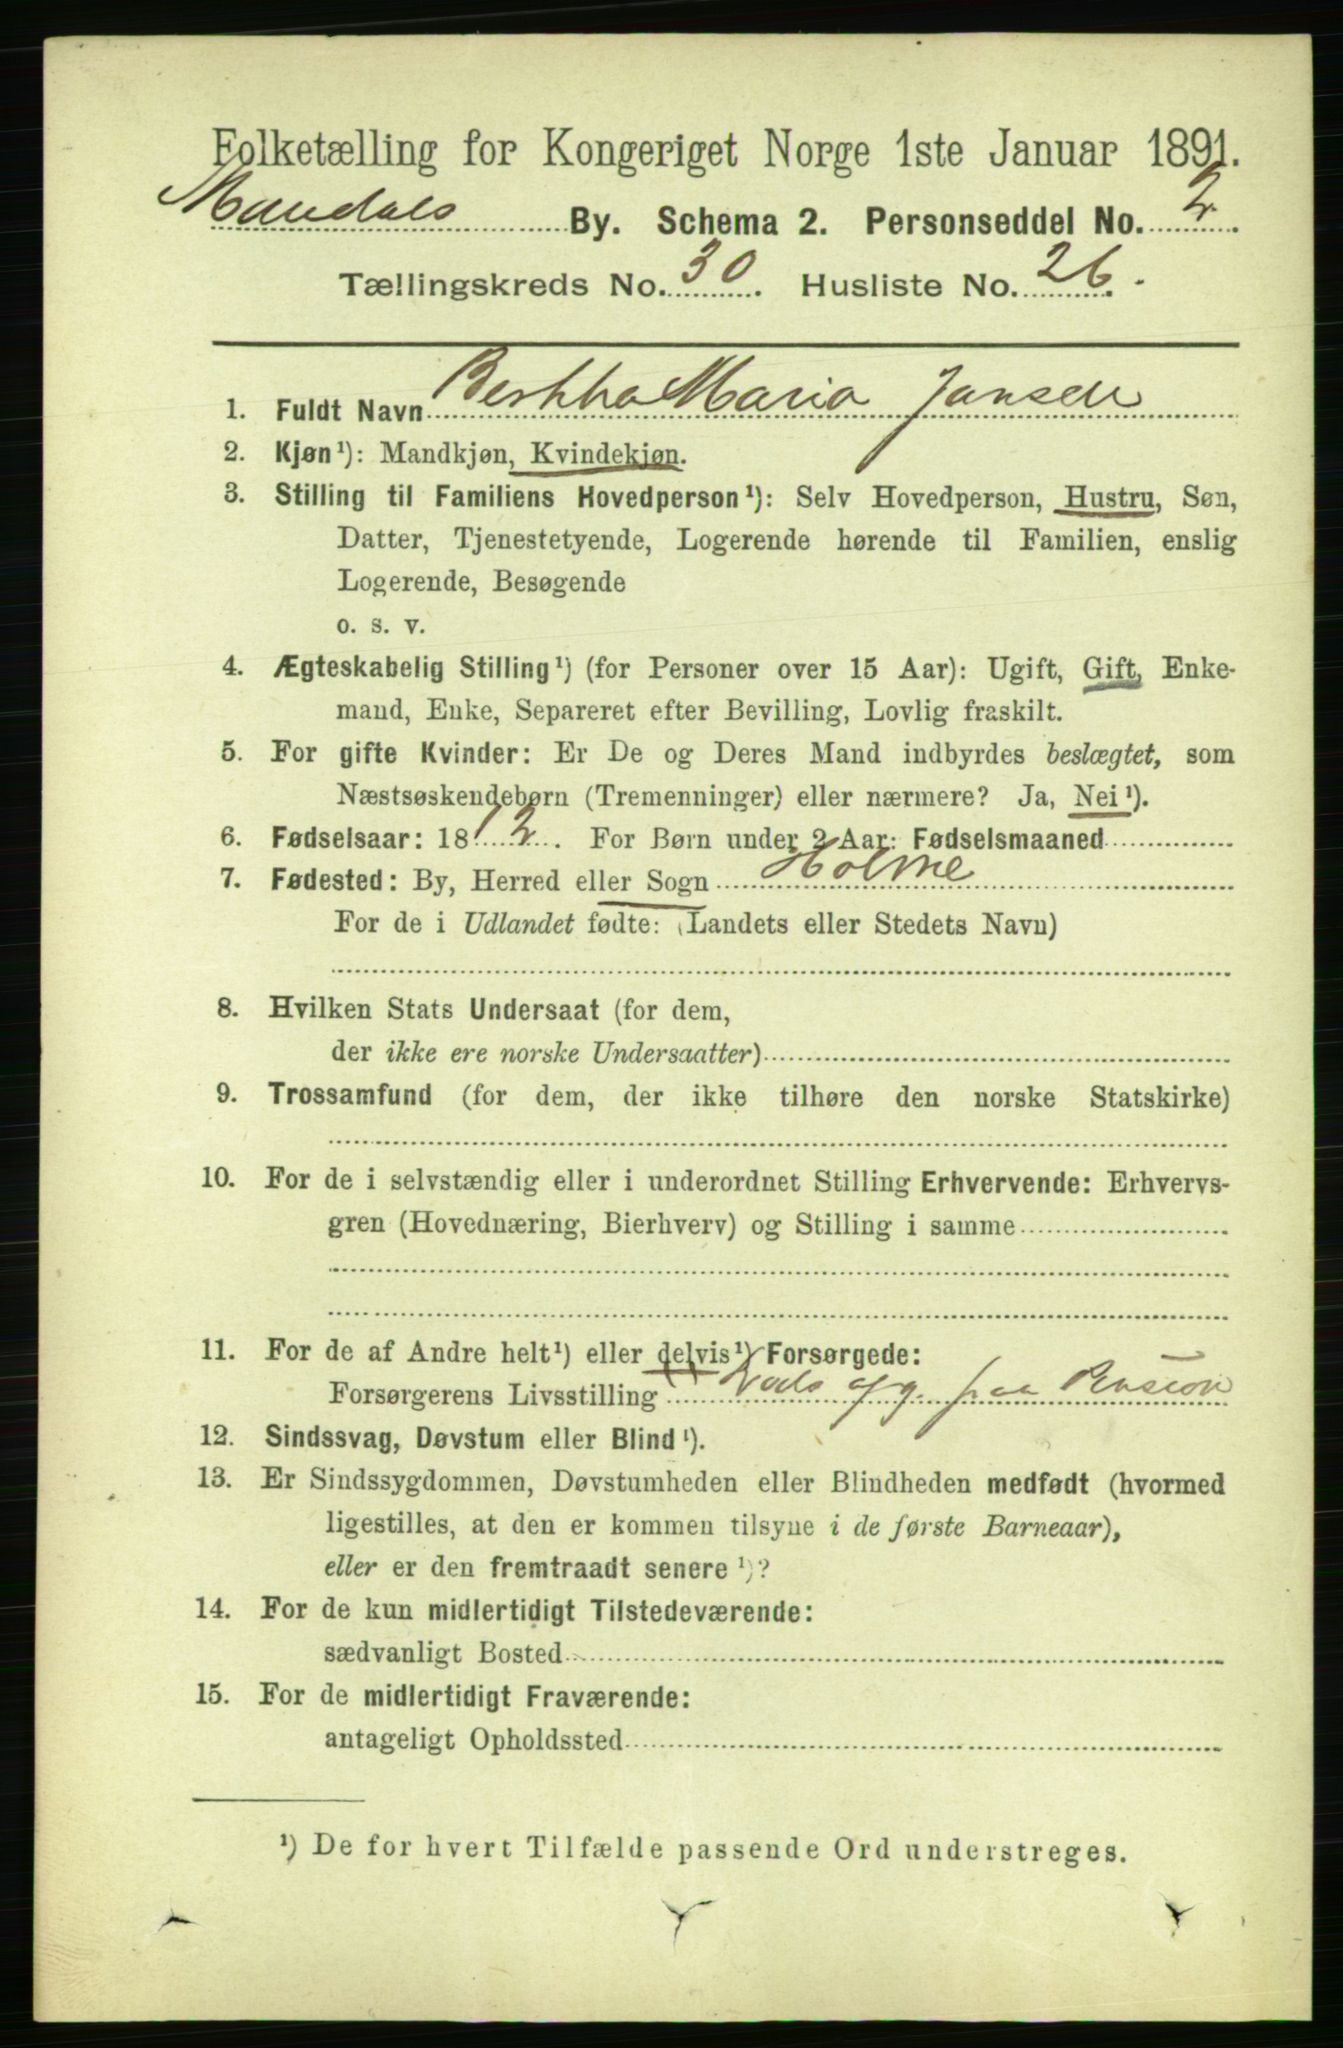 Folketælling for Kongeriget Norge 1ste Januar 1891.
Mandals By. Schema 2. Personseddel No. 2.
Tællingskreds No. 30. Husliste No. 26.
1. Fuldt Navn Berthe Maria Jansen
2. Kjøn¹): Mandkjøn, Kvindekjøn.
3. Stilling til Familiens Hovedperson¹): Selv Hovedperson, Hustru, Søn,
Datter, Tjenestetyende, Logerende hørende til Familien, enslig
Logerende, Besøgende
o. s. v.
4. Ægteskabelig Stilling¹) (for Personer over 15 Aar): Ugift, Gift, Enke-
mand, Enke, Separeret efter Bevilling, Lovlig fraskilt.
5. For gifte Kvinder: Er De og Deres Mand indbyrdes beslægtet, som
Næstsøskendebørn (Tremenninger) eller nærmere? Ja, Nei¹).
6. Fødselsaar: 1812. For Børn under 2 Aar: Fødselsmaaned
7. Fødested: By, Herred eller Sogn Holme
For de i Udlandet fødte: (Landets eller Stedets Navn)
8. Hvilken Stats Undersaat (for dem,
der ikke ere norske Undersaatter)
9. Trossamfund (for dem, der ikke tilhøre den norske Statskirke)
10. For de i selvstændig eller i underordnet Stilling Erhvervende: Erhvervs-
gren (Hovednæring, Bierhverv) og Stilling i samme
11. For de af Andre helt¹) eller delvis¹) Forsørgede:
Forsørgerens Livsstilling paa Pension
12. Sindssvag, Døvstum eller Blind¹).
13. Er Sindssygdommen, Døvstumheden eller Blindheden medfødt (hvormed
ligestilles, at den er kommen tilsyne i de første Barneaar),
eller er den fremtraadt senere¹)?
14. For de kun midlertidigt Tilstedeværende:
sædvanligt Bosted
15. For de midlertidigt Fraværende:
antageligt Opholdssted
¹) De for hvert Tilfælde passende Ord understreges.